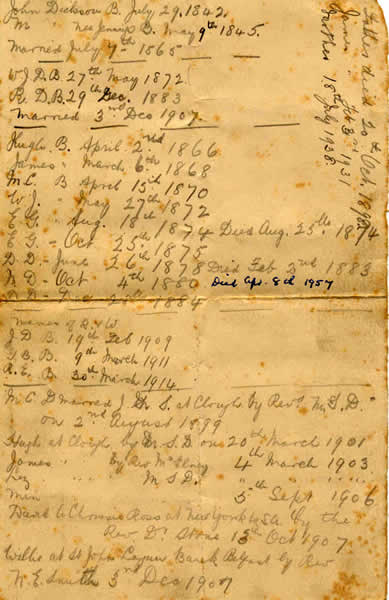 John Dickson B. July 29. 1842.
M " nee Jenny B. May 9th 1845.
Married July 7th 1865
W J D B 27th May 1872
R. D. B. 29th Dec. 1883
Married 3rd Dec 1907
Hugh B. April 2nd 1866
James " March 6th 1868
M C. B April 15th 1870
W J. " May 27th 1872
E G. " Aug. 18th 1874 Died Aug. 25th 1874
E G. - Oct 25th 1875
D D - June 26th 1878 Died Feb 2nd 1883
N D - Oct 4th 1880 Died Apr. 8th 1957
1884
Names of D & W
J D B 19th Feb 1909
G. B. B. 9th March 1911
R. E. B. 30th March 1914
M C D Married J. S. at Clough by Revd Mr S. D.
on 2nd August 1899
Hugh at Clough by S D on 20th March 1901
James " by Rev 4th March 1903
" M S D. " " " "
Min 5th Sept 1906
Ross at New York by the
Rev. D. Stone 15th Oct 1907
Willie at St John Belfast by Rev
W. E. Smith 3rd Dec 1907
Father died 20th Oct. 1892
James " Feb 3rd 1931
Mother 18th July 1938